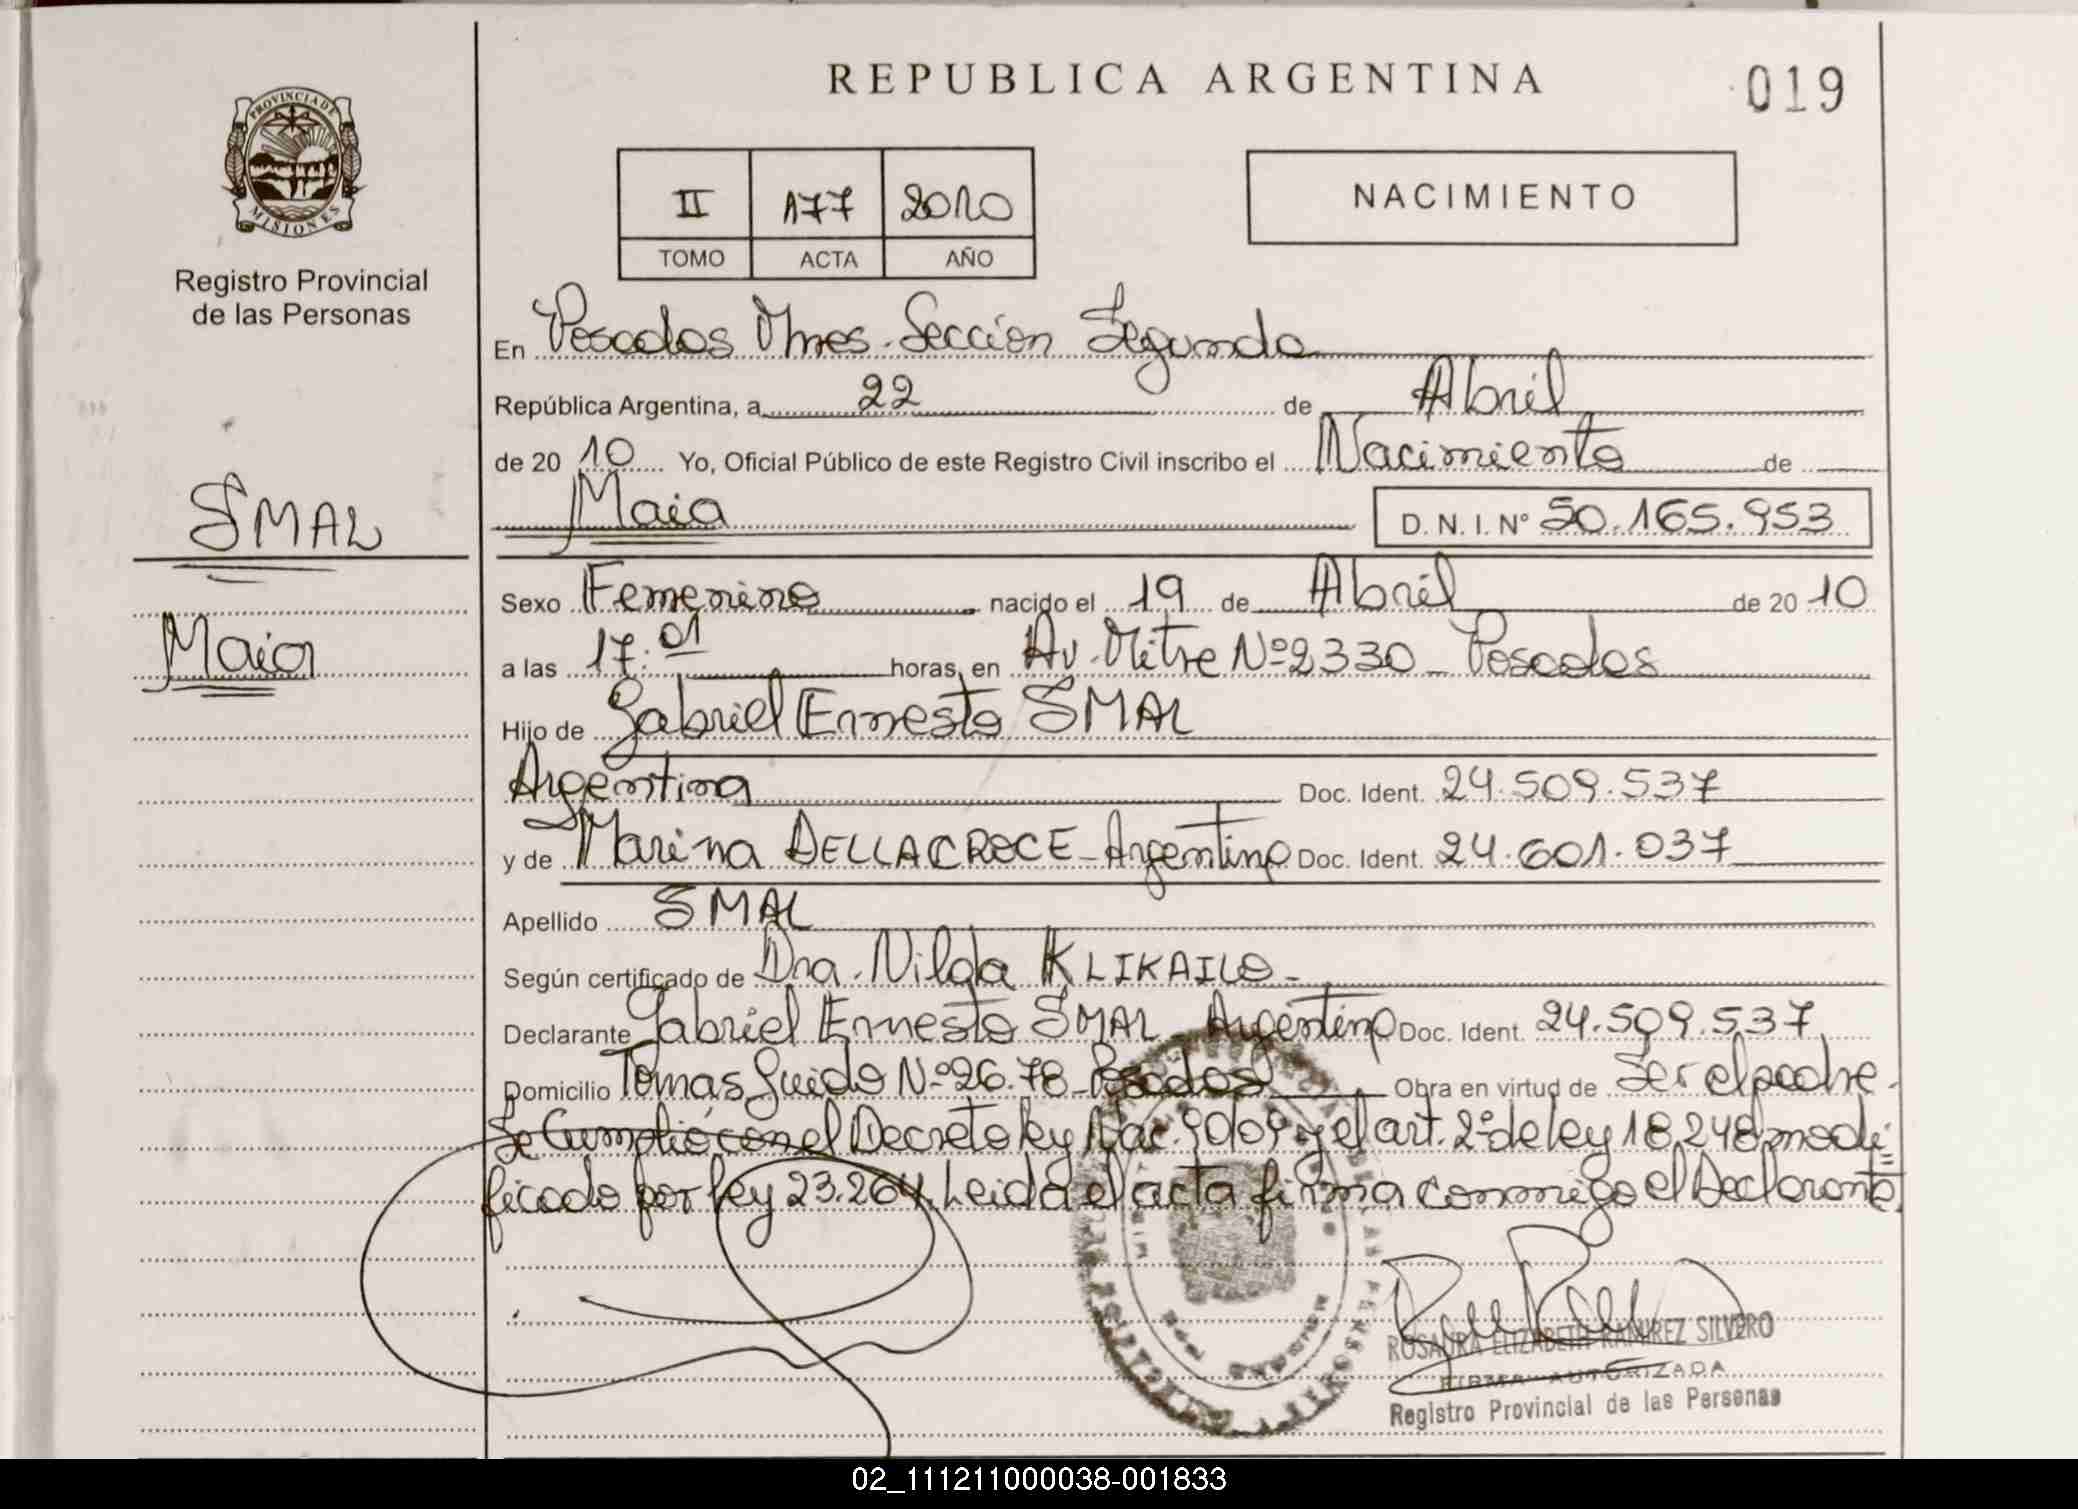 REPUBLICA ARGENTINA
019
PROVINCIA DE
MISIONES
Registro Provincial
de las Personas
II 177 2010
TOMO ACTA AÑO
NACIMIENTO
En Posadas Mnes. Sección Segunda
República Argentina, a 22 de Abril
de 2010 Yo, Oficial Público de este Registro Civil inscribo el Nacimiento de
Maia D. N. I. N° 50.165.953
SMAL
Maia
Sexo Femenino nacido el 19 de Abril de 2010
a las 17:01 horas, en Av. Mitre Nº 2330 - Posadas
Hijo de Gabriel Ernesto SMAL
Argentina Doc. Ident. 24.509.537
y de Marina DELLACROCE - Argentina Doc. Ident. 24.601.037
Apellido SMAL
Según certificado de Dra. Nilda KLIKAILO -
Declarante Gabriel Ernesto SMAL Argentino Doc. Ident. 24.509.537
Domicilio Tomas Guido Nº 26.78 - Posadas Obra en virtud de Ser el padre -
Se Cumplió con el Decreto ley Nac. 9009 y el art. 2º de ley 18.248 modi=
ficado por ley 23.264. Leida el acta firma conmigo el Declarante.
ROSAURA ELIZABETH RAMIREZ SILVERO
FIRMA AUTORIZADA
Registro Provincial de las Personas
02_111211000038-001833